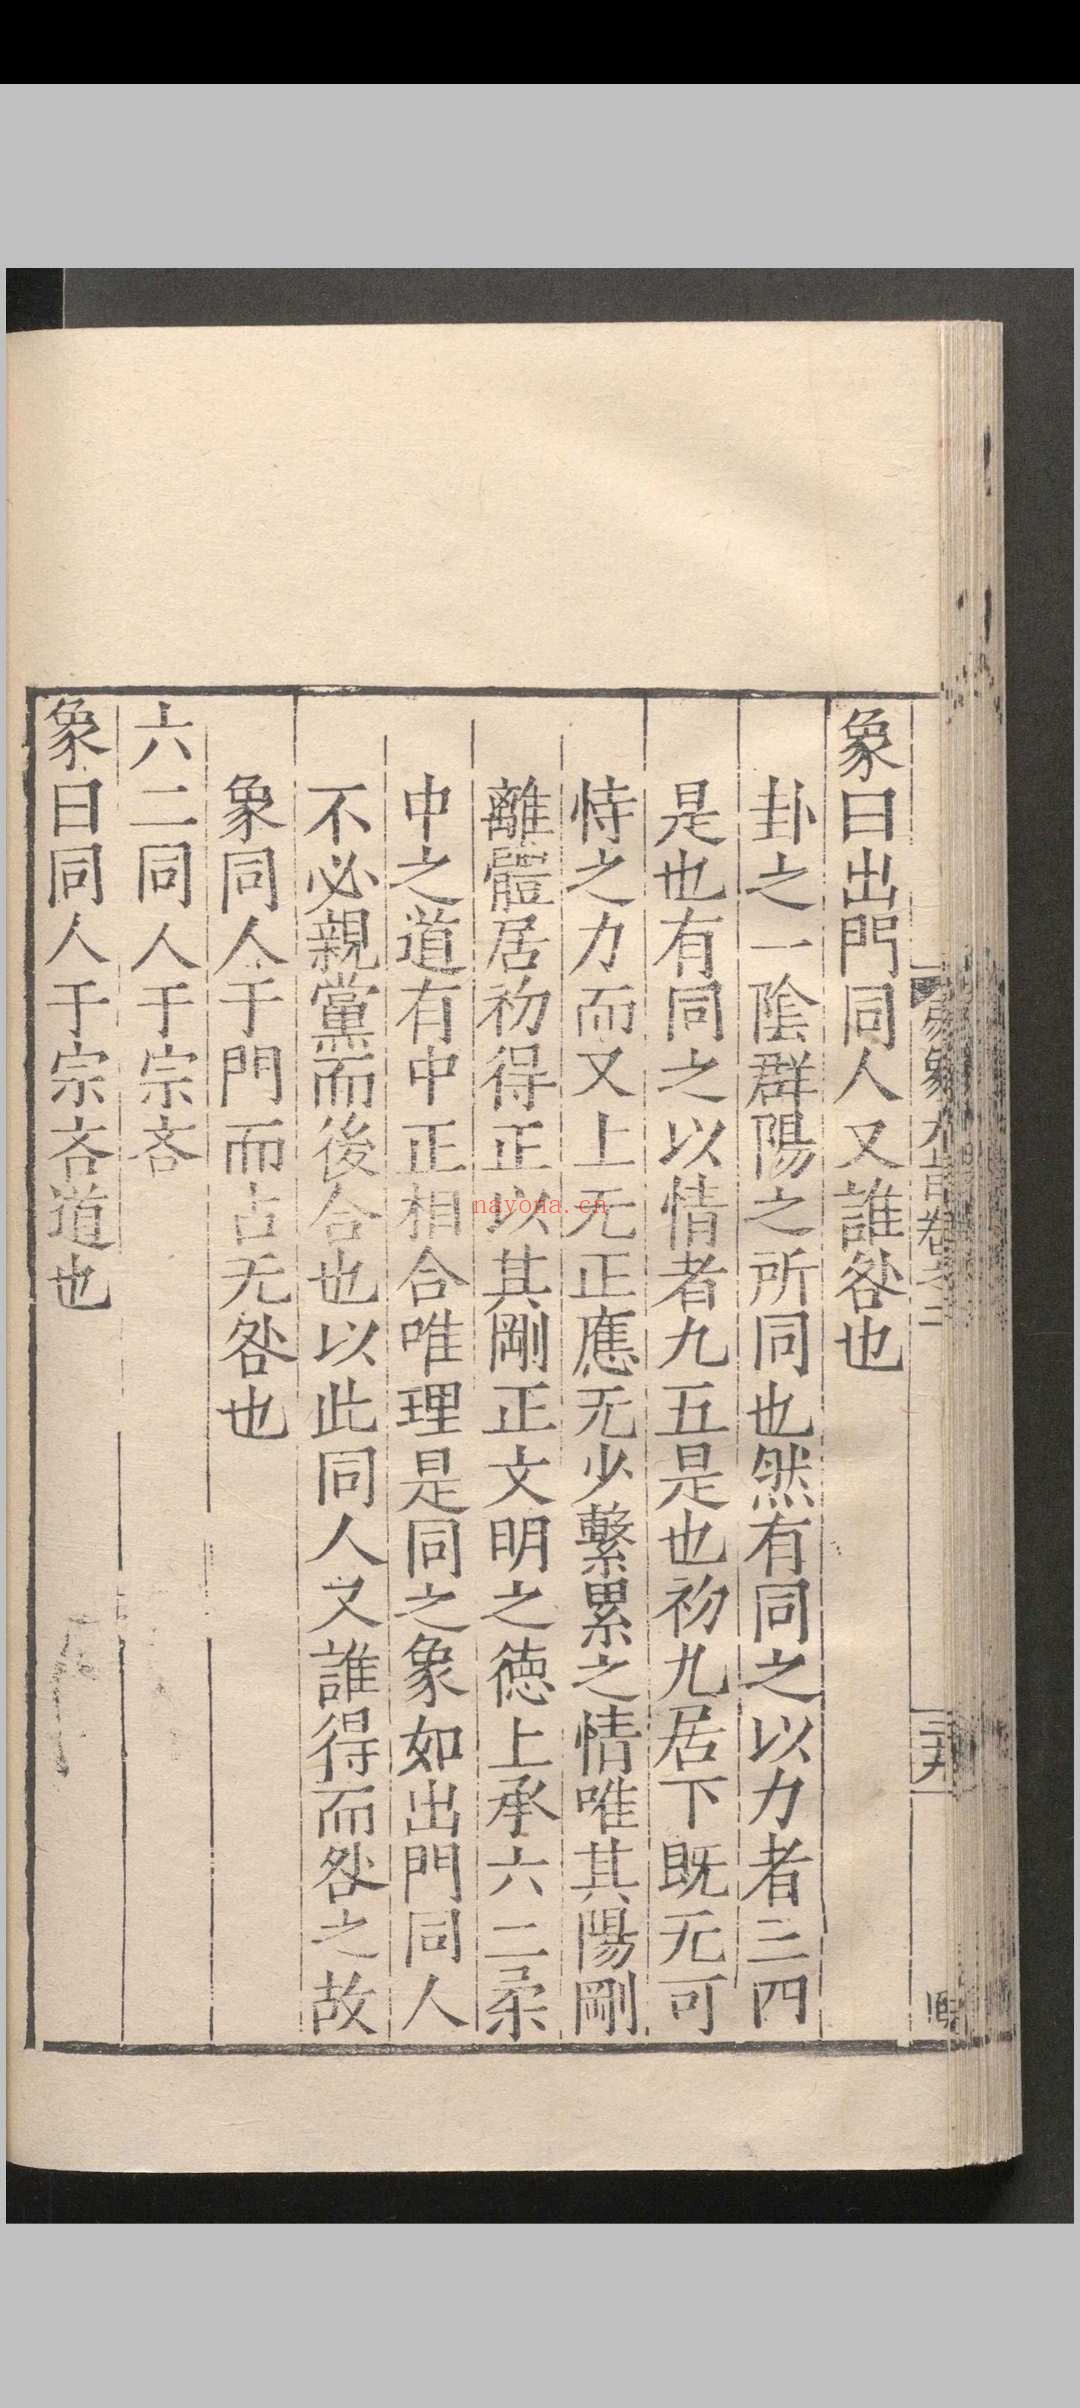 象曰出門同人又誰咎也
卦之一陰群陽之所同也然有同之以力者三四
是也有同之以情者九五是也初九居下既无可
恃之力而又上无正應无少繫累之情唯其陽剛
離體居初得正以其剛正文明之德上承六二柔
中之道有中正相合唯理是同之象如出門同人
不必親黨而後合也以此同人又誰得而咎之故
象同人于門而占无咎也
六二同人于宗吝
象曰同人于宗吝道也
nayona.cn